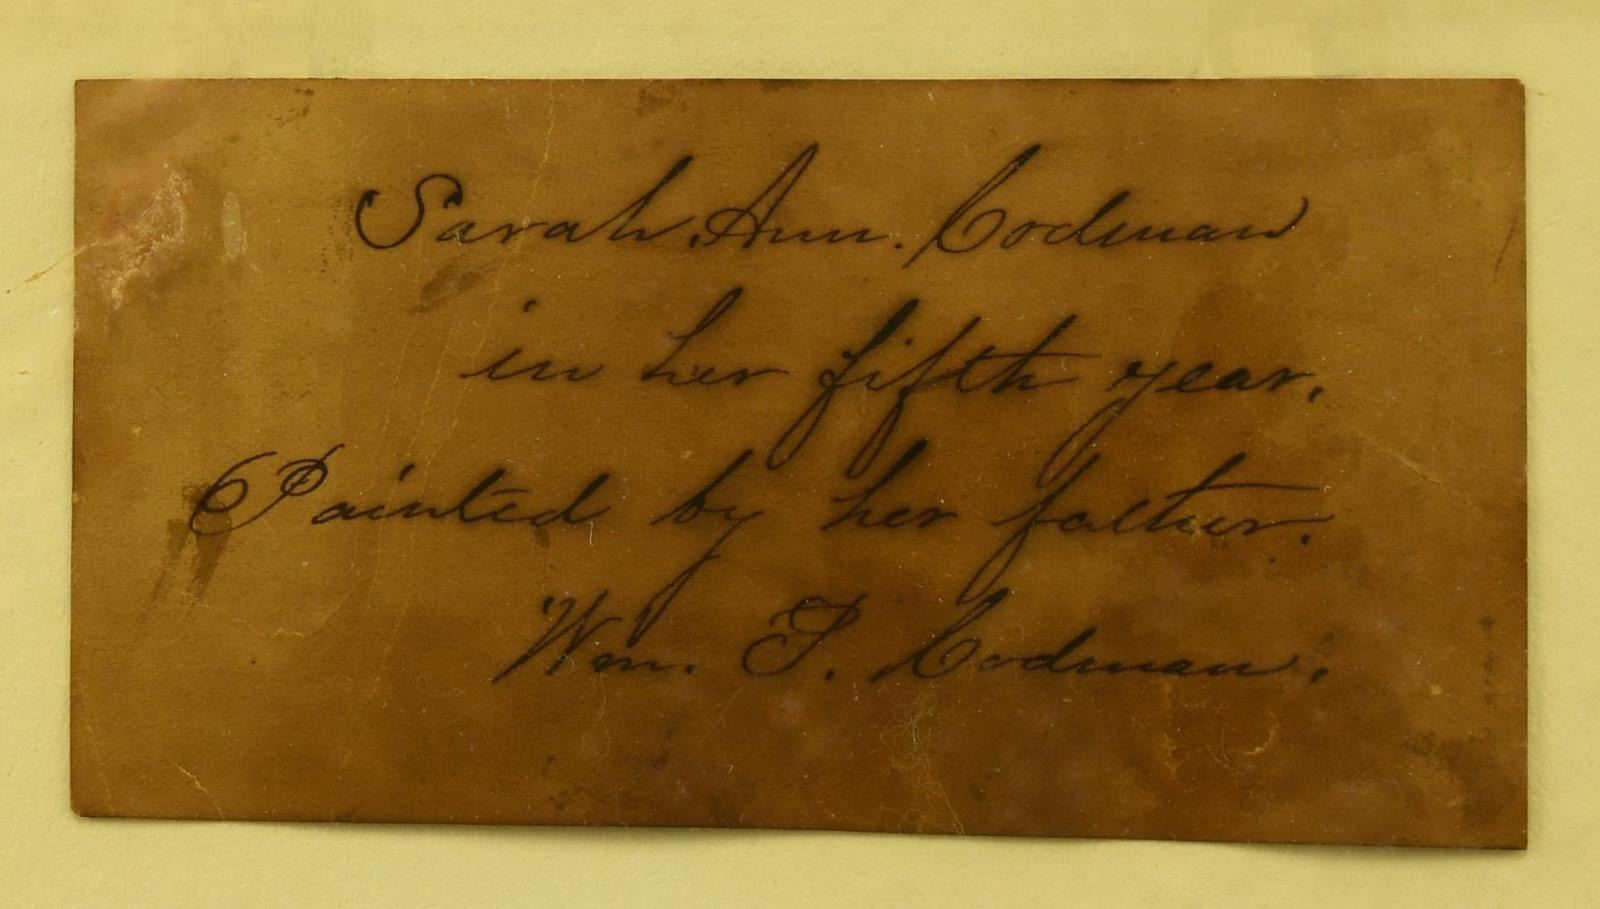 Sarah. Ann. Codman
in her fifth year.
Painted by her father.
Wm. P. Codman.